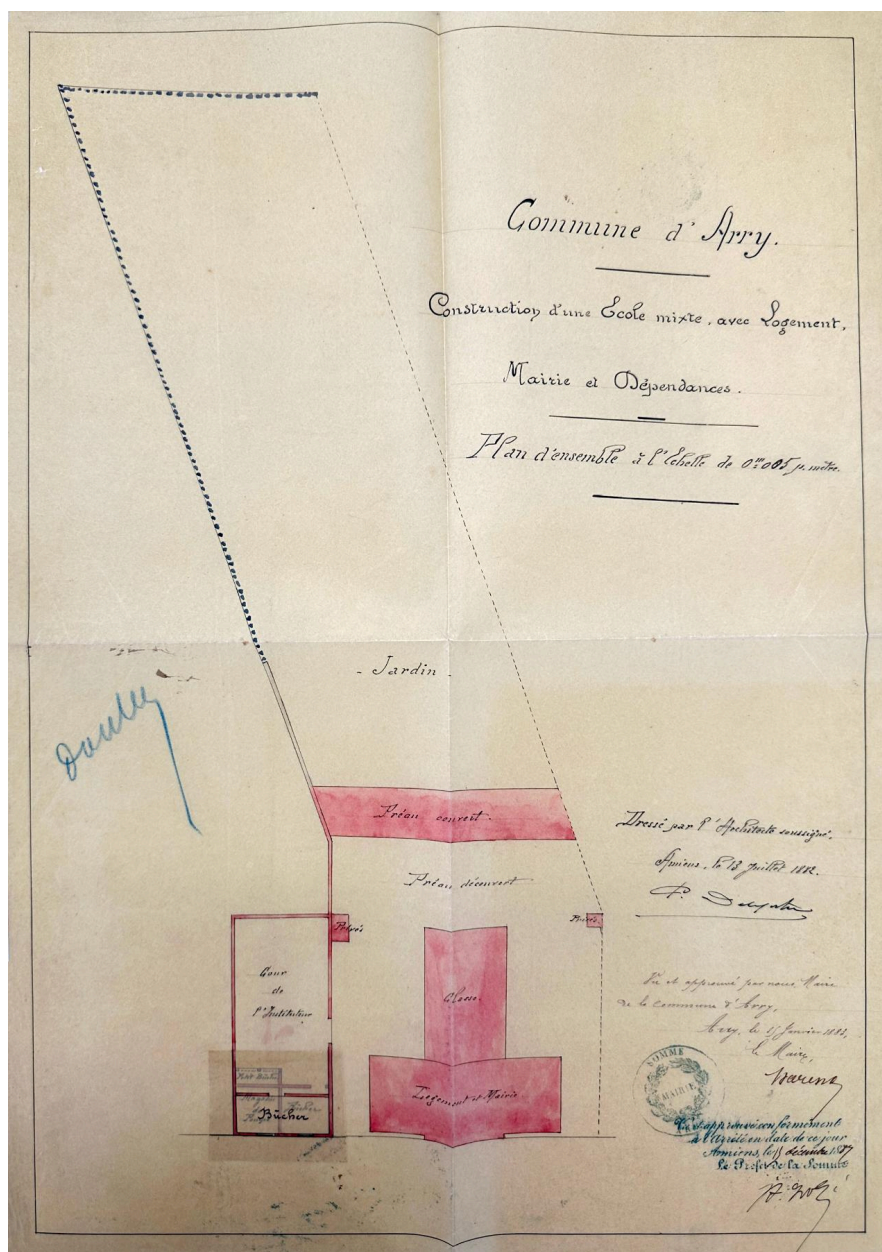 Commune d'Arry.
Construction d'une Ecole mixte, avec Logement,
Mairie et Dépendances.
Plan d'ensemble à l'Echelle de 0m005 p. mètre.
- Jardin -
Préau couvert.
Préau découvert
Privés
Privés
Cour
de
l'Instituteur
Classe.
Logement et Mairie
Bûcher
Dressé par l'Architecte soussigné.
Amiens, le 13 Juillet 1882.
Vu et approuvé par nous Maire
de la commune d'Arry,
Arry, le Janvier
le Maire,
SOMME
MAIRIE
Vu et approuvé conformément
à l'Arrêté en date de ce jour
Amiens, le décembre
Le Préfet de la Somme